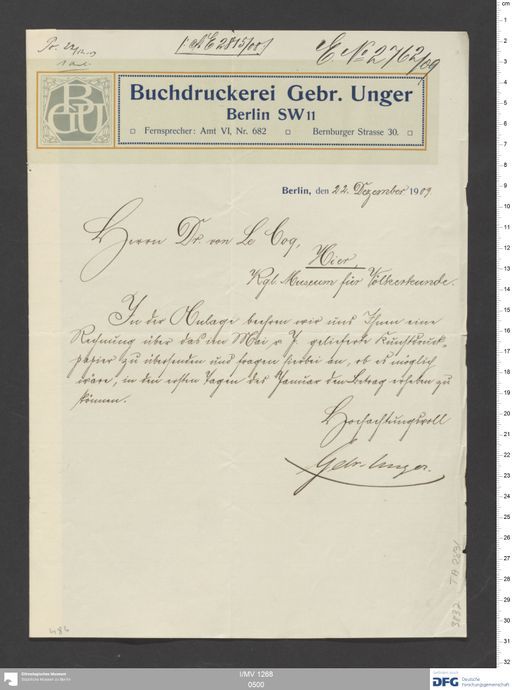 Pr. 22/12.09
1 Anl.
/: E 2815/08 :/
E No 2762/09
BGU
Buchdruckerei Gebr. Unger
Berlin SW 11
Fernsprecher: Amt VI, Nr. 682 Bernburger Strasse 30.
Berlin, den 22. Dezember 1909
Herrn Dr. von Le Coq,
Hier,
Kgl. Museum für Völkerkunde.
In der Anlage beehren wir uns Ihnen eine
Rechnung über das im Mai v. J. gelieferte Kunstdruck-
papier zu übersenden und fragen hierbei an, ob es möglich
wäre, in den ersten Tagen des Januar den Betrag erheben zu
können.
Hochachtungsvoll
Gebr. Unger.
484
Ethnologisches Museum
Staatliche Museen zu Berlin
I/MV 1268
0500
DFG Deutsche
Forschungsgemeinschaft
cm
1
2
3
4
5
6
7
8
9
10
11
12
13
14
15
16
17
18
19
20
21
22
23
24
25
26
27
28
29
30
31
32